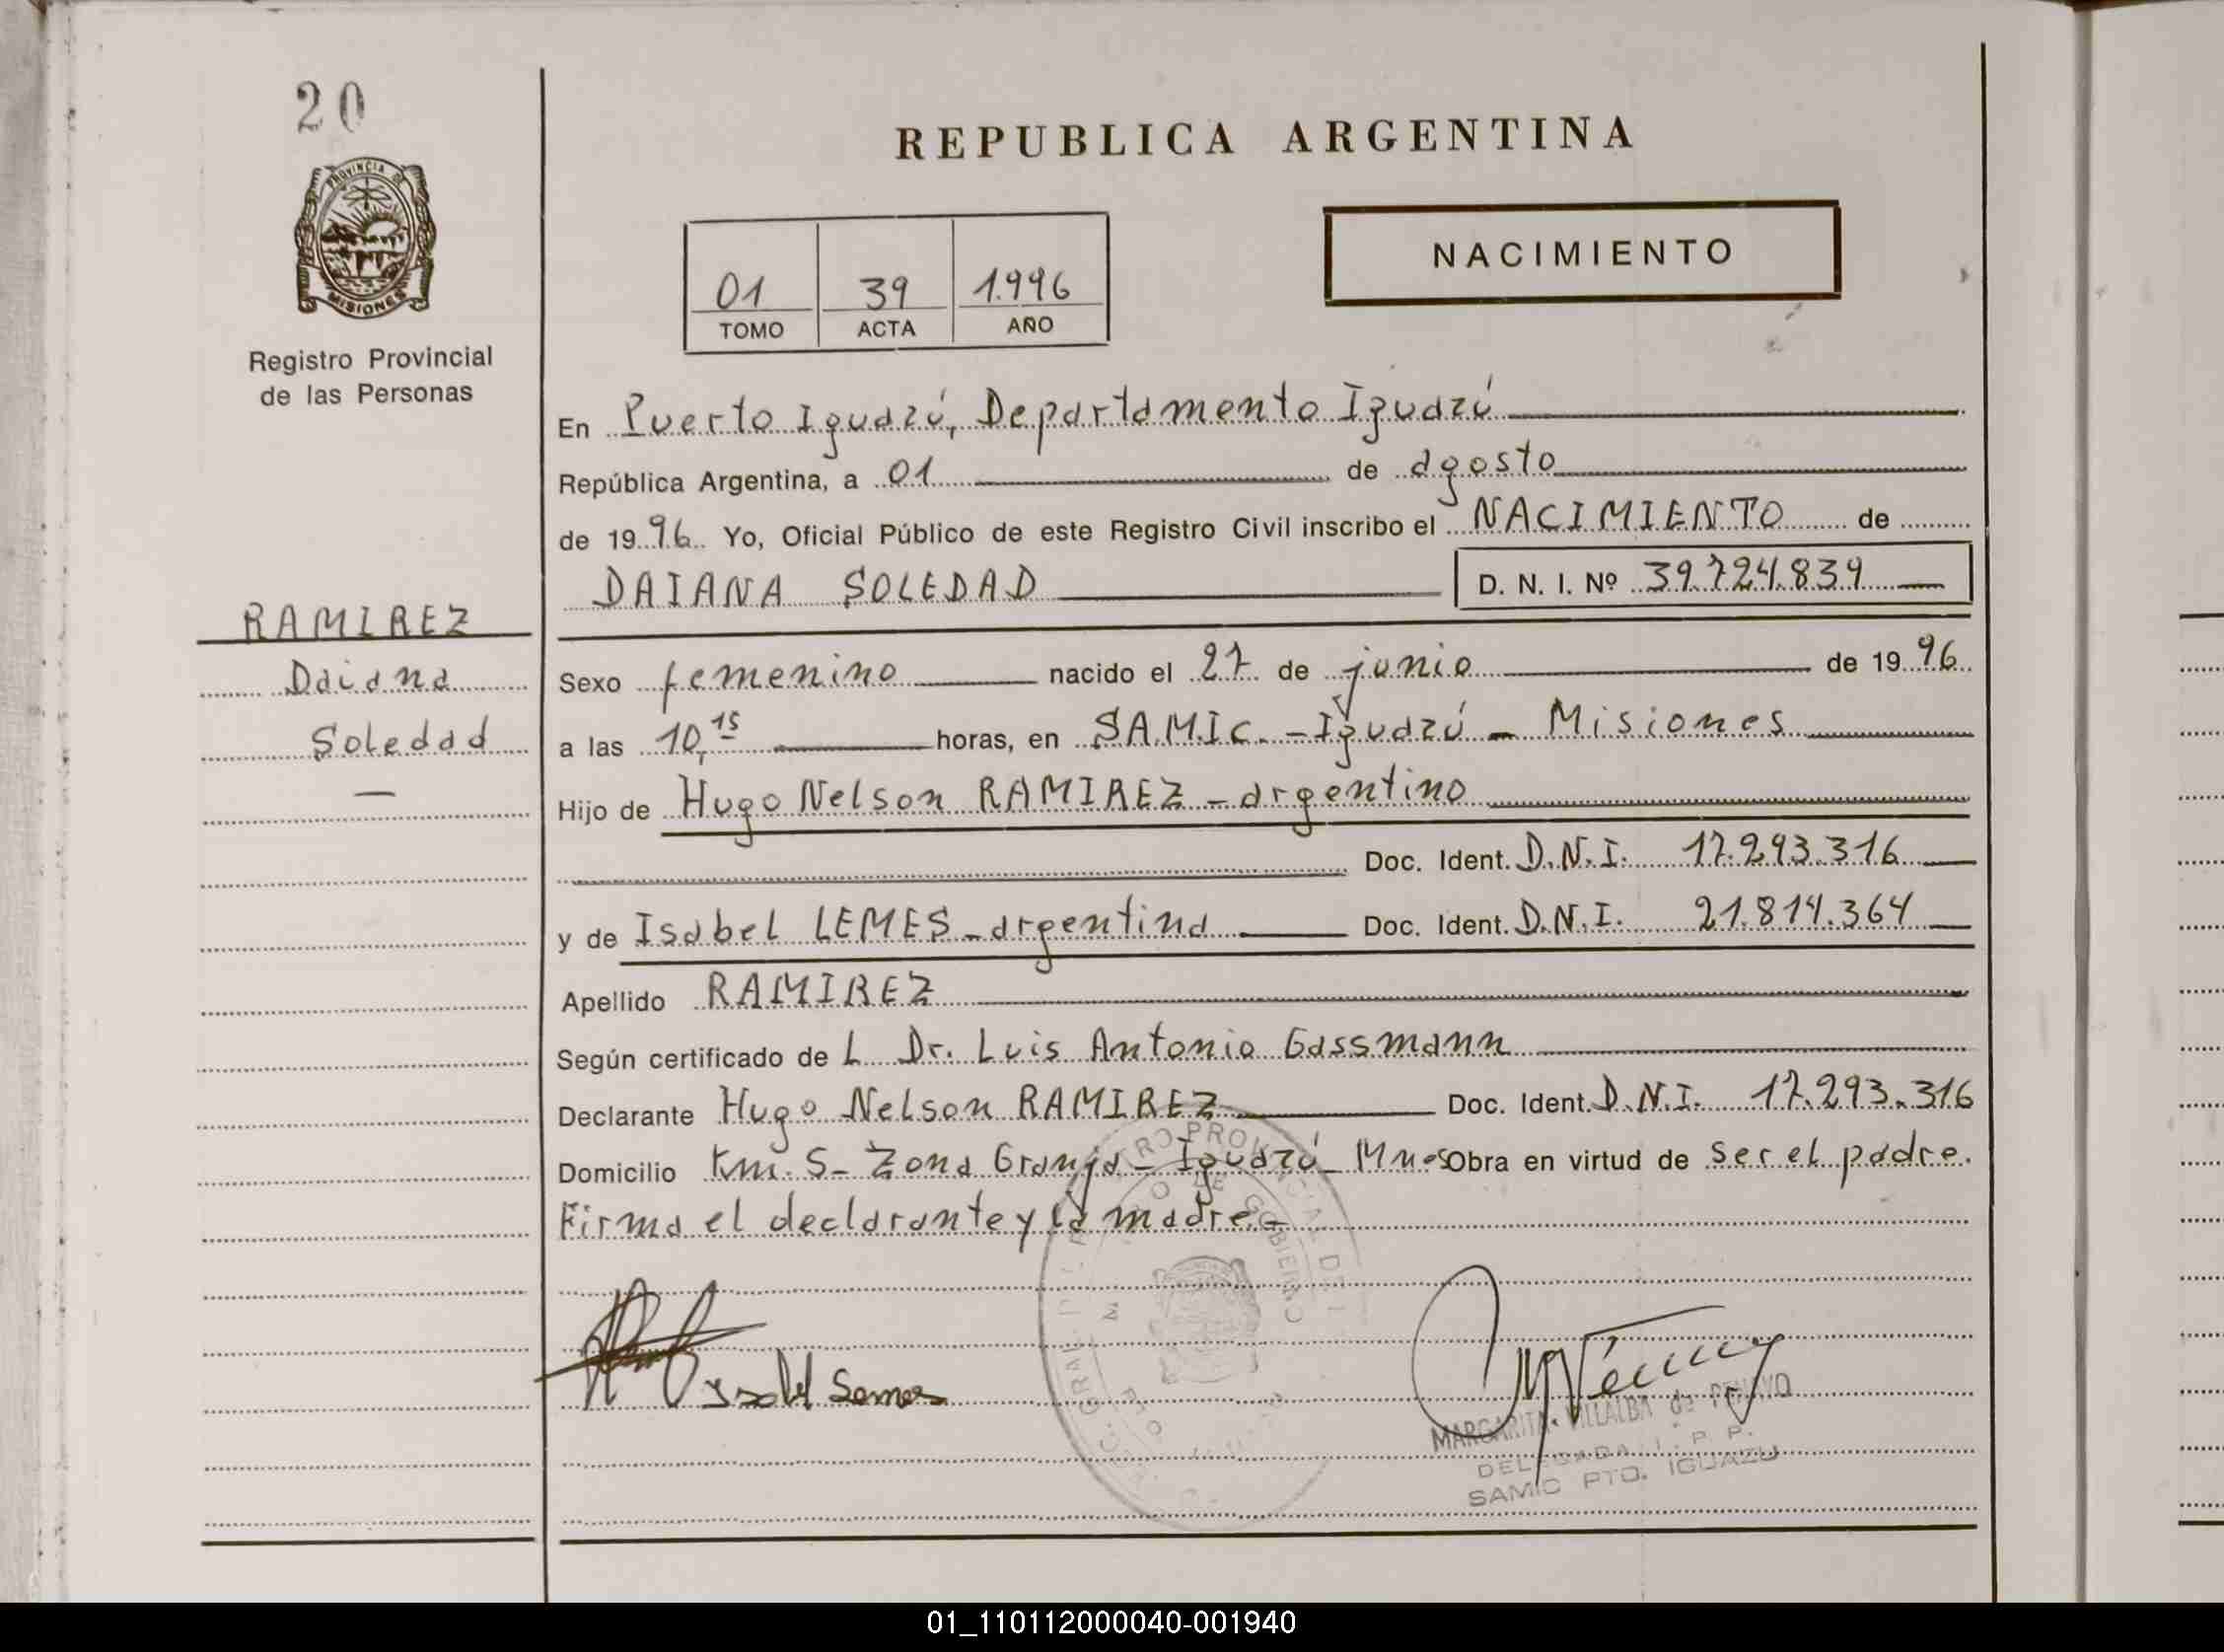 20
REPUBLICA ARGENTINA
PROVINCIA DE
MISIONES
NACIMIENTO
01 39 1.996
TOMO ACTA AÑO
Registro Provincial
de las Personas
En Puerto Iguazú, Departamento Iguazú
República Argentina, a 01 de agosto
de 1996 Yo, Oficial Público de este Registro Civil inscribo el NACIMIENTO de
DAIANA SOLEDAD D. N. I. Nº 39.724.839
RAMIREZ
Daiana
Soledad
Sexo femenino nacido el 27 de junio de 1996
a las 10,15 horas, en SAMIC. - Iguazú - Misiones
Hijo de Hugo Nelson RAMIREZ - argentino
Doc. Ident. D.N.I. 17.293.316
y de Isabel LEMES - argentina Doc. Ident. D.N.I. 21.814.364
Apellido RAMIREZ
Según certificado de L Dr. Luis Antonio Gassmann
Declarante Hugo Nelson RAMIREZ Doc. Ident. D.N.I. 17.293.316
Domicilio Km. 5 - Zona Granja - Iguazú - Mnes Obra en virtud de ser el padre.
Firma el declarante y la madre.-
MARGARITA VILLALBA de PENAYO
DELEGADA
SAMIC PTO. IGUAZU
01_110112000040-001940